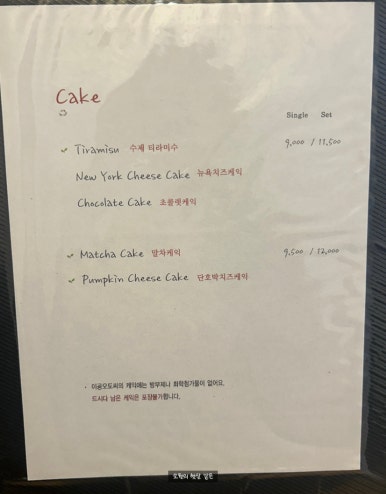 Cake
Single Set
Tiramisu 수제 티라미수 9,000 / 11,500
New York Cheese Cake 뉴욕치즈케익
Chocolate Cake 초콜렛케익
Matcha Cake 말차케익 9,500 / 12,000
Pumpkin Cheese Cake 단호박치즈케익
· 이공오도씨의 케익에는 방부제나 화학첨가물이 없어요.
드시다 남은 케익은 포장불가합니다.